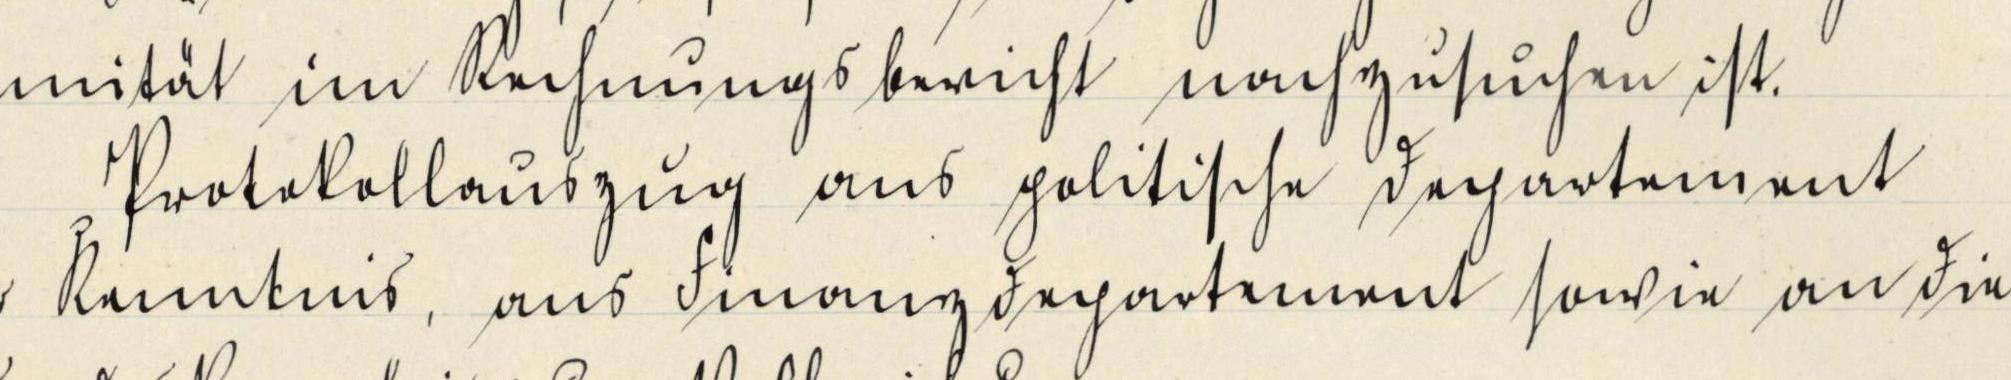 mnität im Rechnungsbericht nachzusuchen ist.
Protokollauszug ans politische Departement
Kenntnis, ans Finanzdepartement sowie an die